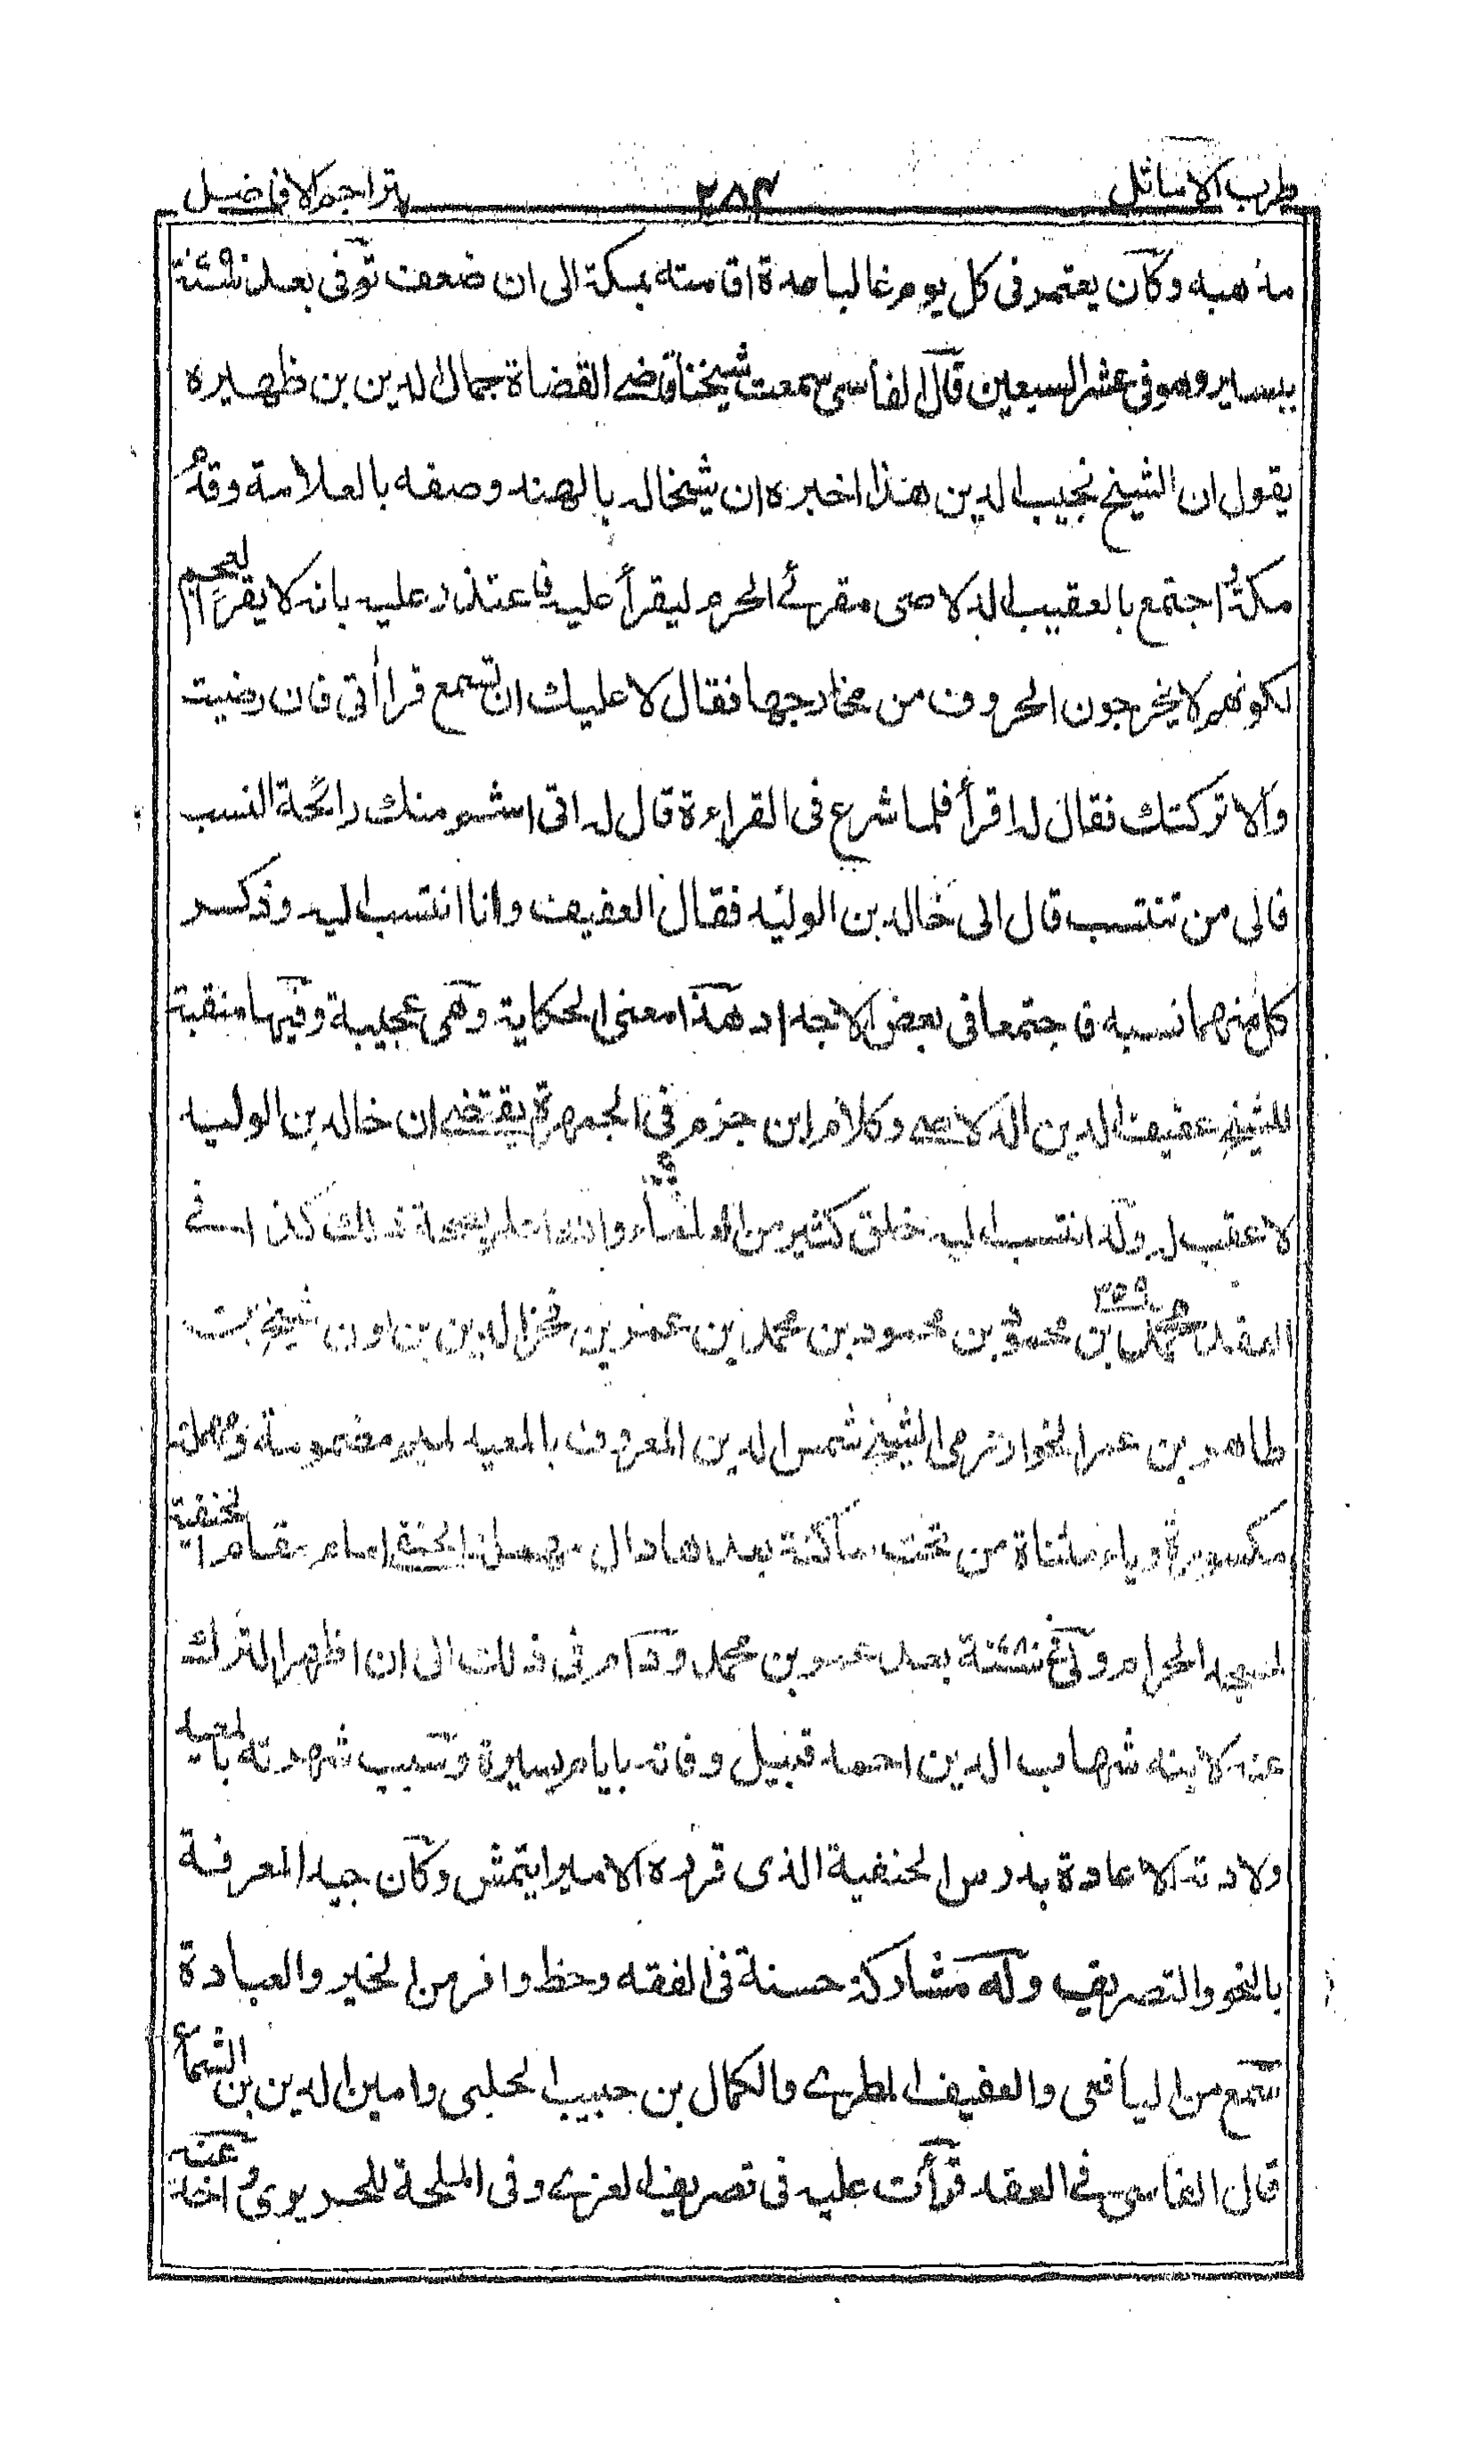 طرب الاماثل ٢٨٤ بتراجم الافاضل
مذهبه وكان يعتمر فى كل يوم غالبا مدة اقامته بمكة الى ان ضعف توفى بعد سنة
بيسير وهو فى عشر السبعين قال الفاسى سمعت شيخنا قاضى القضاة جمال الدين بن ظهيره
يقول ان الشيخ نجيب الدين هذا اخبره ان شيخا له بالهند وصفه بالعلامة وقدم
مكة اجتمع بالعفيف الدلاصى مقرئ الحرم ليقرأ عليه فاعتذر عليه بانه لا يقرأ العجم
لكونهم لا يخرجون الحروف من مخارجها فقال لا عليك ان تسمع قراأتى فان رضيت
والا تركتك فقال له اقرأ فلما شرع فى القراءة قال له انى اشم منك رائحة النسب
فالى من تنتسب قال الى خالد بن الوليد فقال العفيف وانا انتسب اليه وذكر
كل منهما نسبه فاجتمعا فى بعض الاجداد هذا معنى الحكاية وهى عجيبة وفيها منقبة
للشيخ عفيف الدين الدلاصى وكلام ابن حزم فى الجمهرة يقتضى ان خالد بن الوليد
لا عقب له وقد انتسب اليه خلق كثير من الفضلاء والله اعلم بصحة ذلك كذا فى
العقد محمد بن محمود بن محمود بن محمد بن عمر بن فخر الدين بن اون شيخ بن
طاهر بن عمر الخوارزمى الشيخ شمس الدين المعروف بالمعيد بميم مضمومة ومهملة
مكسورة وياء مثناة من تحت ساكنة بعدها دال مهملة الحنفى امام مقام الحنفية
بالمسجد الحرام ولى سنة بعد عمر بن محمد ودام فى ذلك الى ان اظهر الترك
عنه لابنه شهاب الدين احمد قبيل وفاته بايام يسيرة وسبب شهرته بالمعيد
ولادته الاعادة بدرس الحنفية الذى قرره الامير ايتمش وكان جيد المعرفة
بالنحو والتصريف وله مشاركة حسنة فى الفقه وحظ وافر من الخير والعبادة
سمع من اليافعى والعفيف المطرى والكمال بن حبيب الحلبى وامين الدين بن الشماع
قال الفاسى فى العقد قرأت عليه فى تصريف العزى وفى الملحة للحريرى واخذ عنه